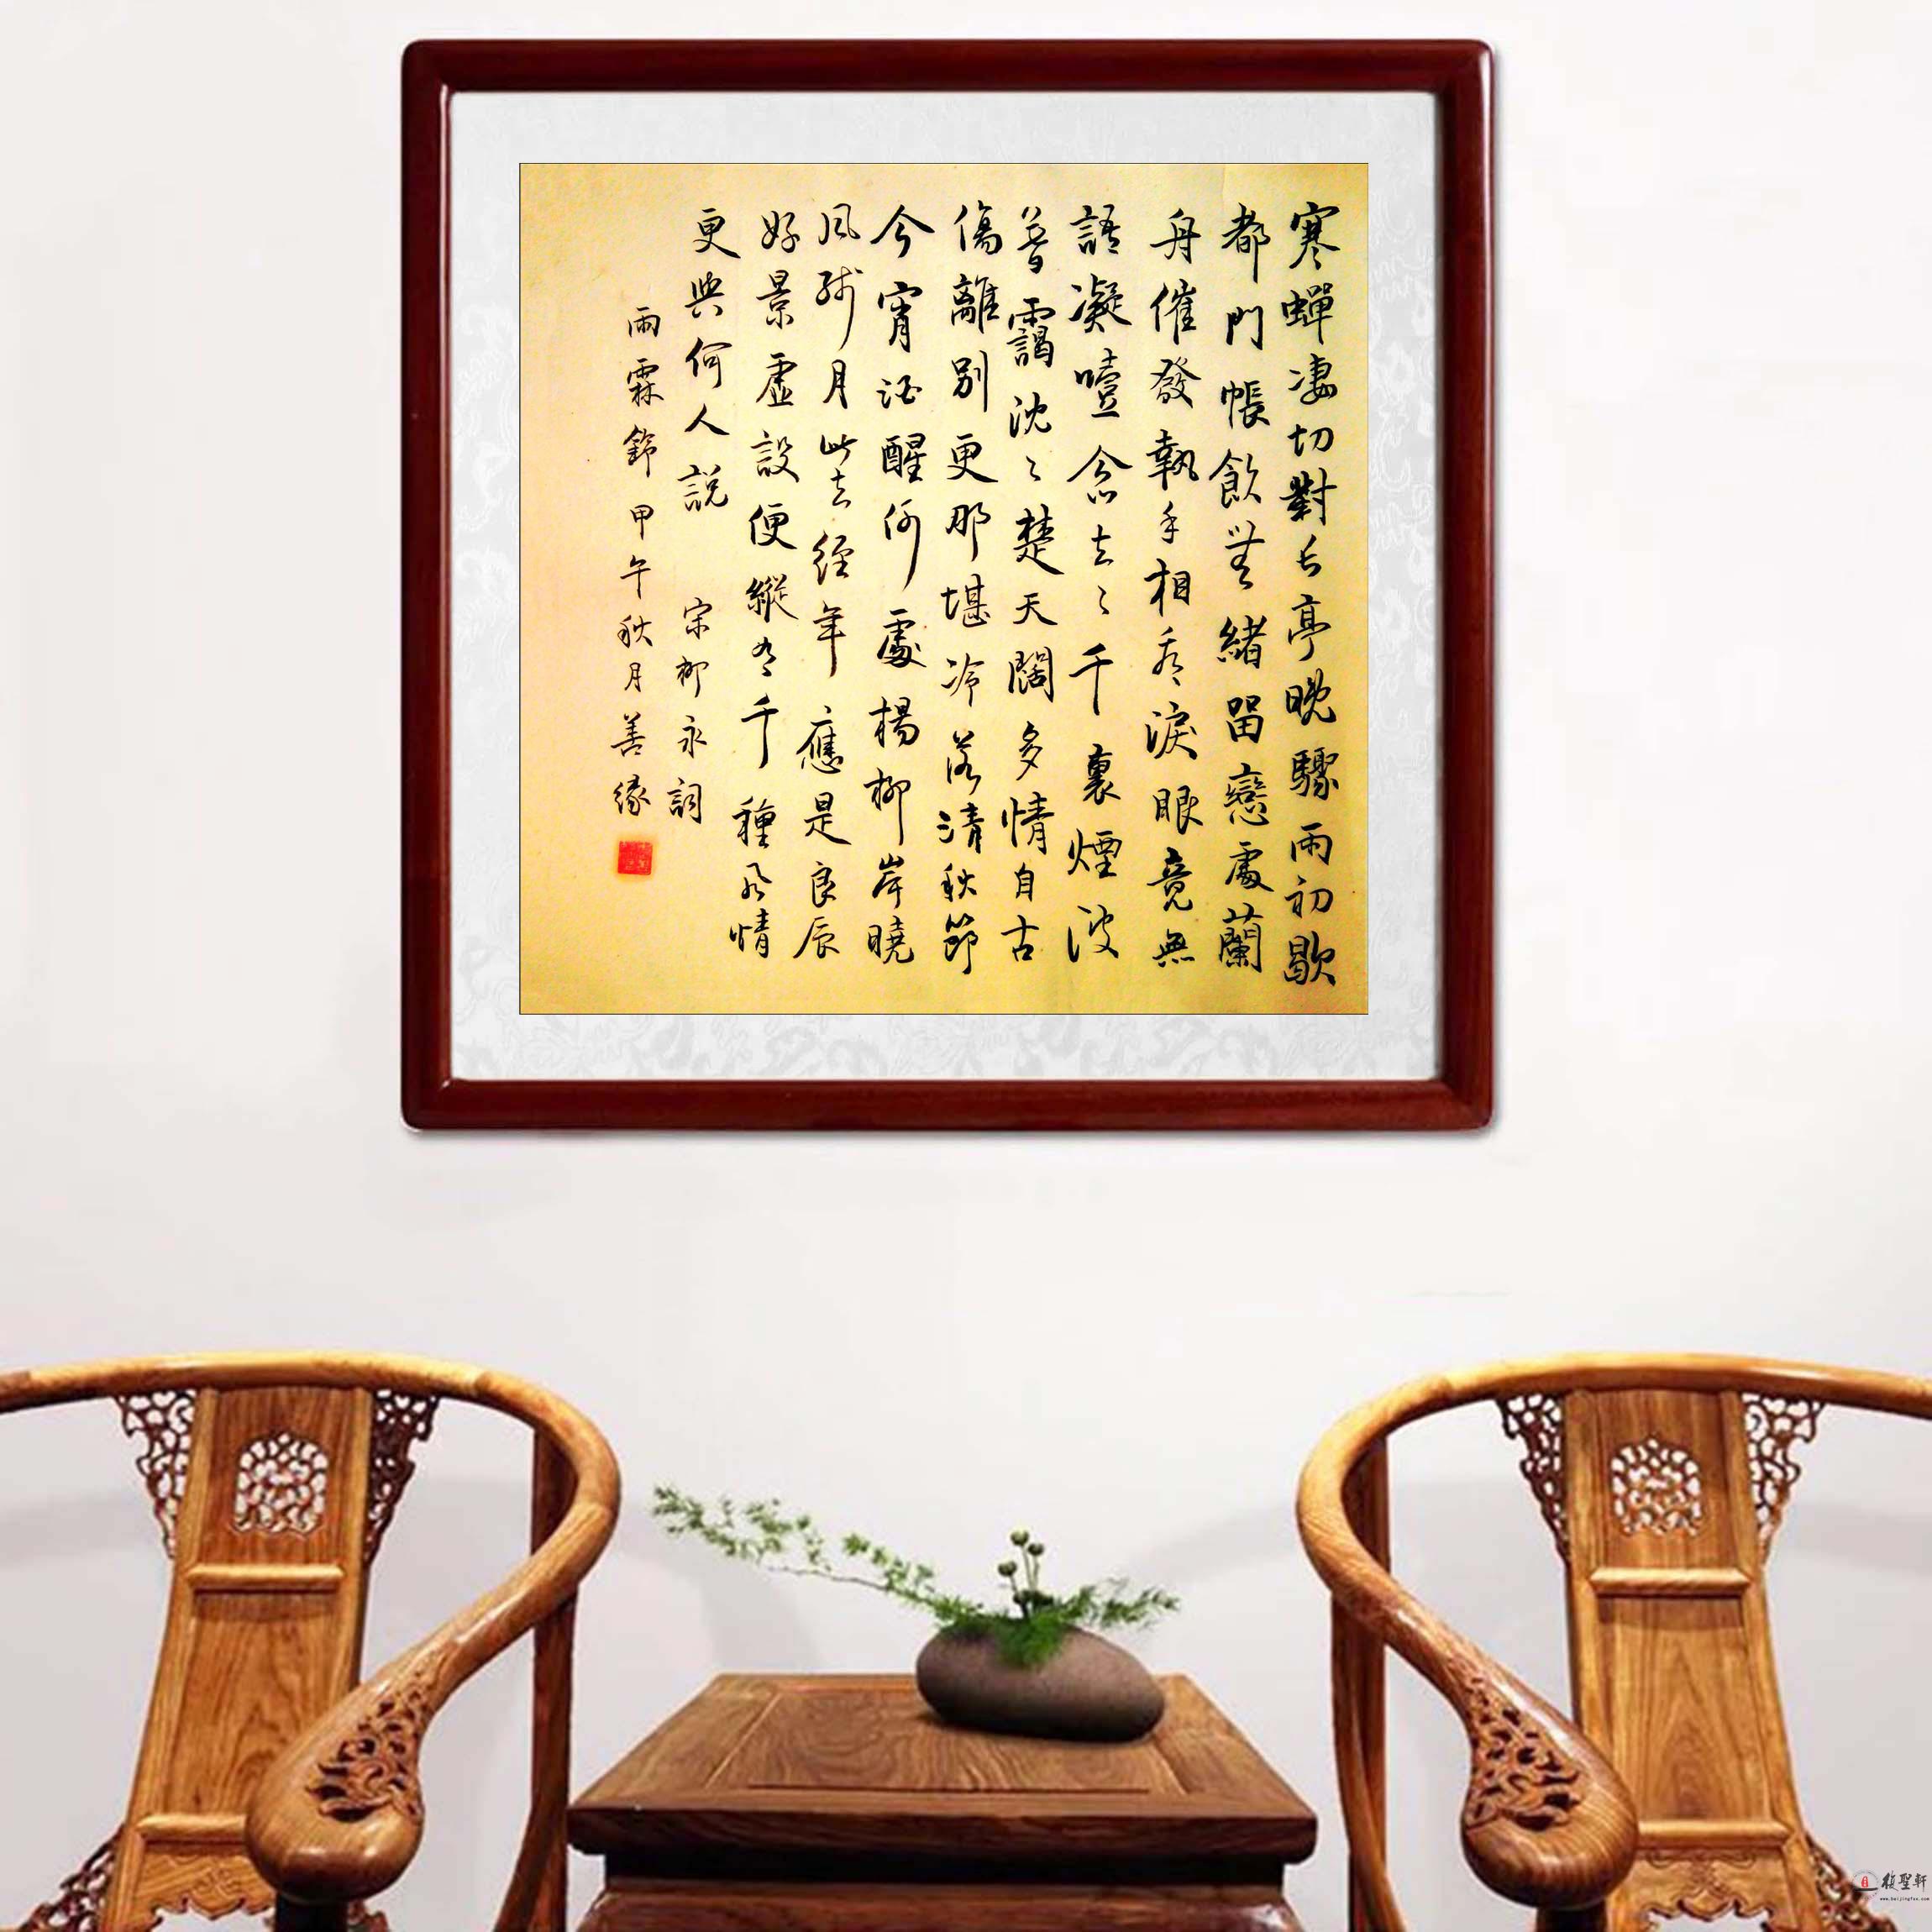 寒蟬凄切對長亭晚驟雨初歇
都門帳飲無緒留戀處蘭
舟催發執手相看淚眼竟無
語凝噎念去〻千裏煙波
暮靄沈〻楚天闊多情自古
傷離別更那堪冷落清秋節
今宵酒醒何處楊柳岸曉
風殘月此去經年應是良辰
好景虛設便縱有千種風情
更與何人説 宋柳永詞
雨霖鈴甲午秋月善緣
馥聖軒
www.beijingfsx.com